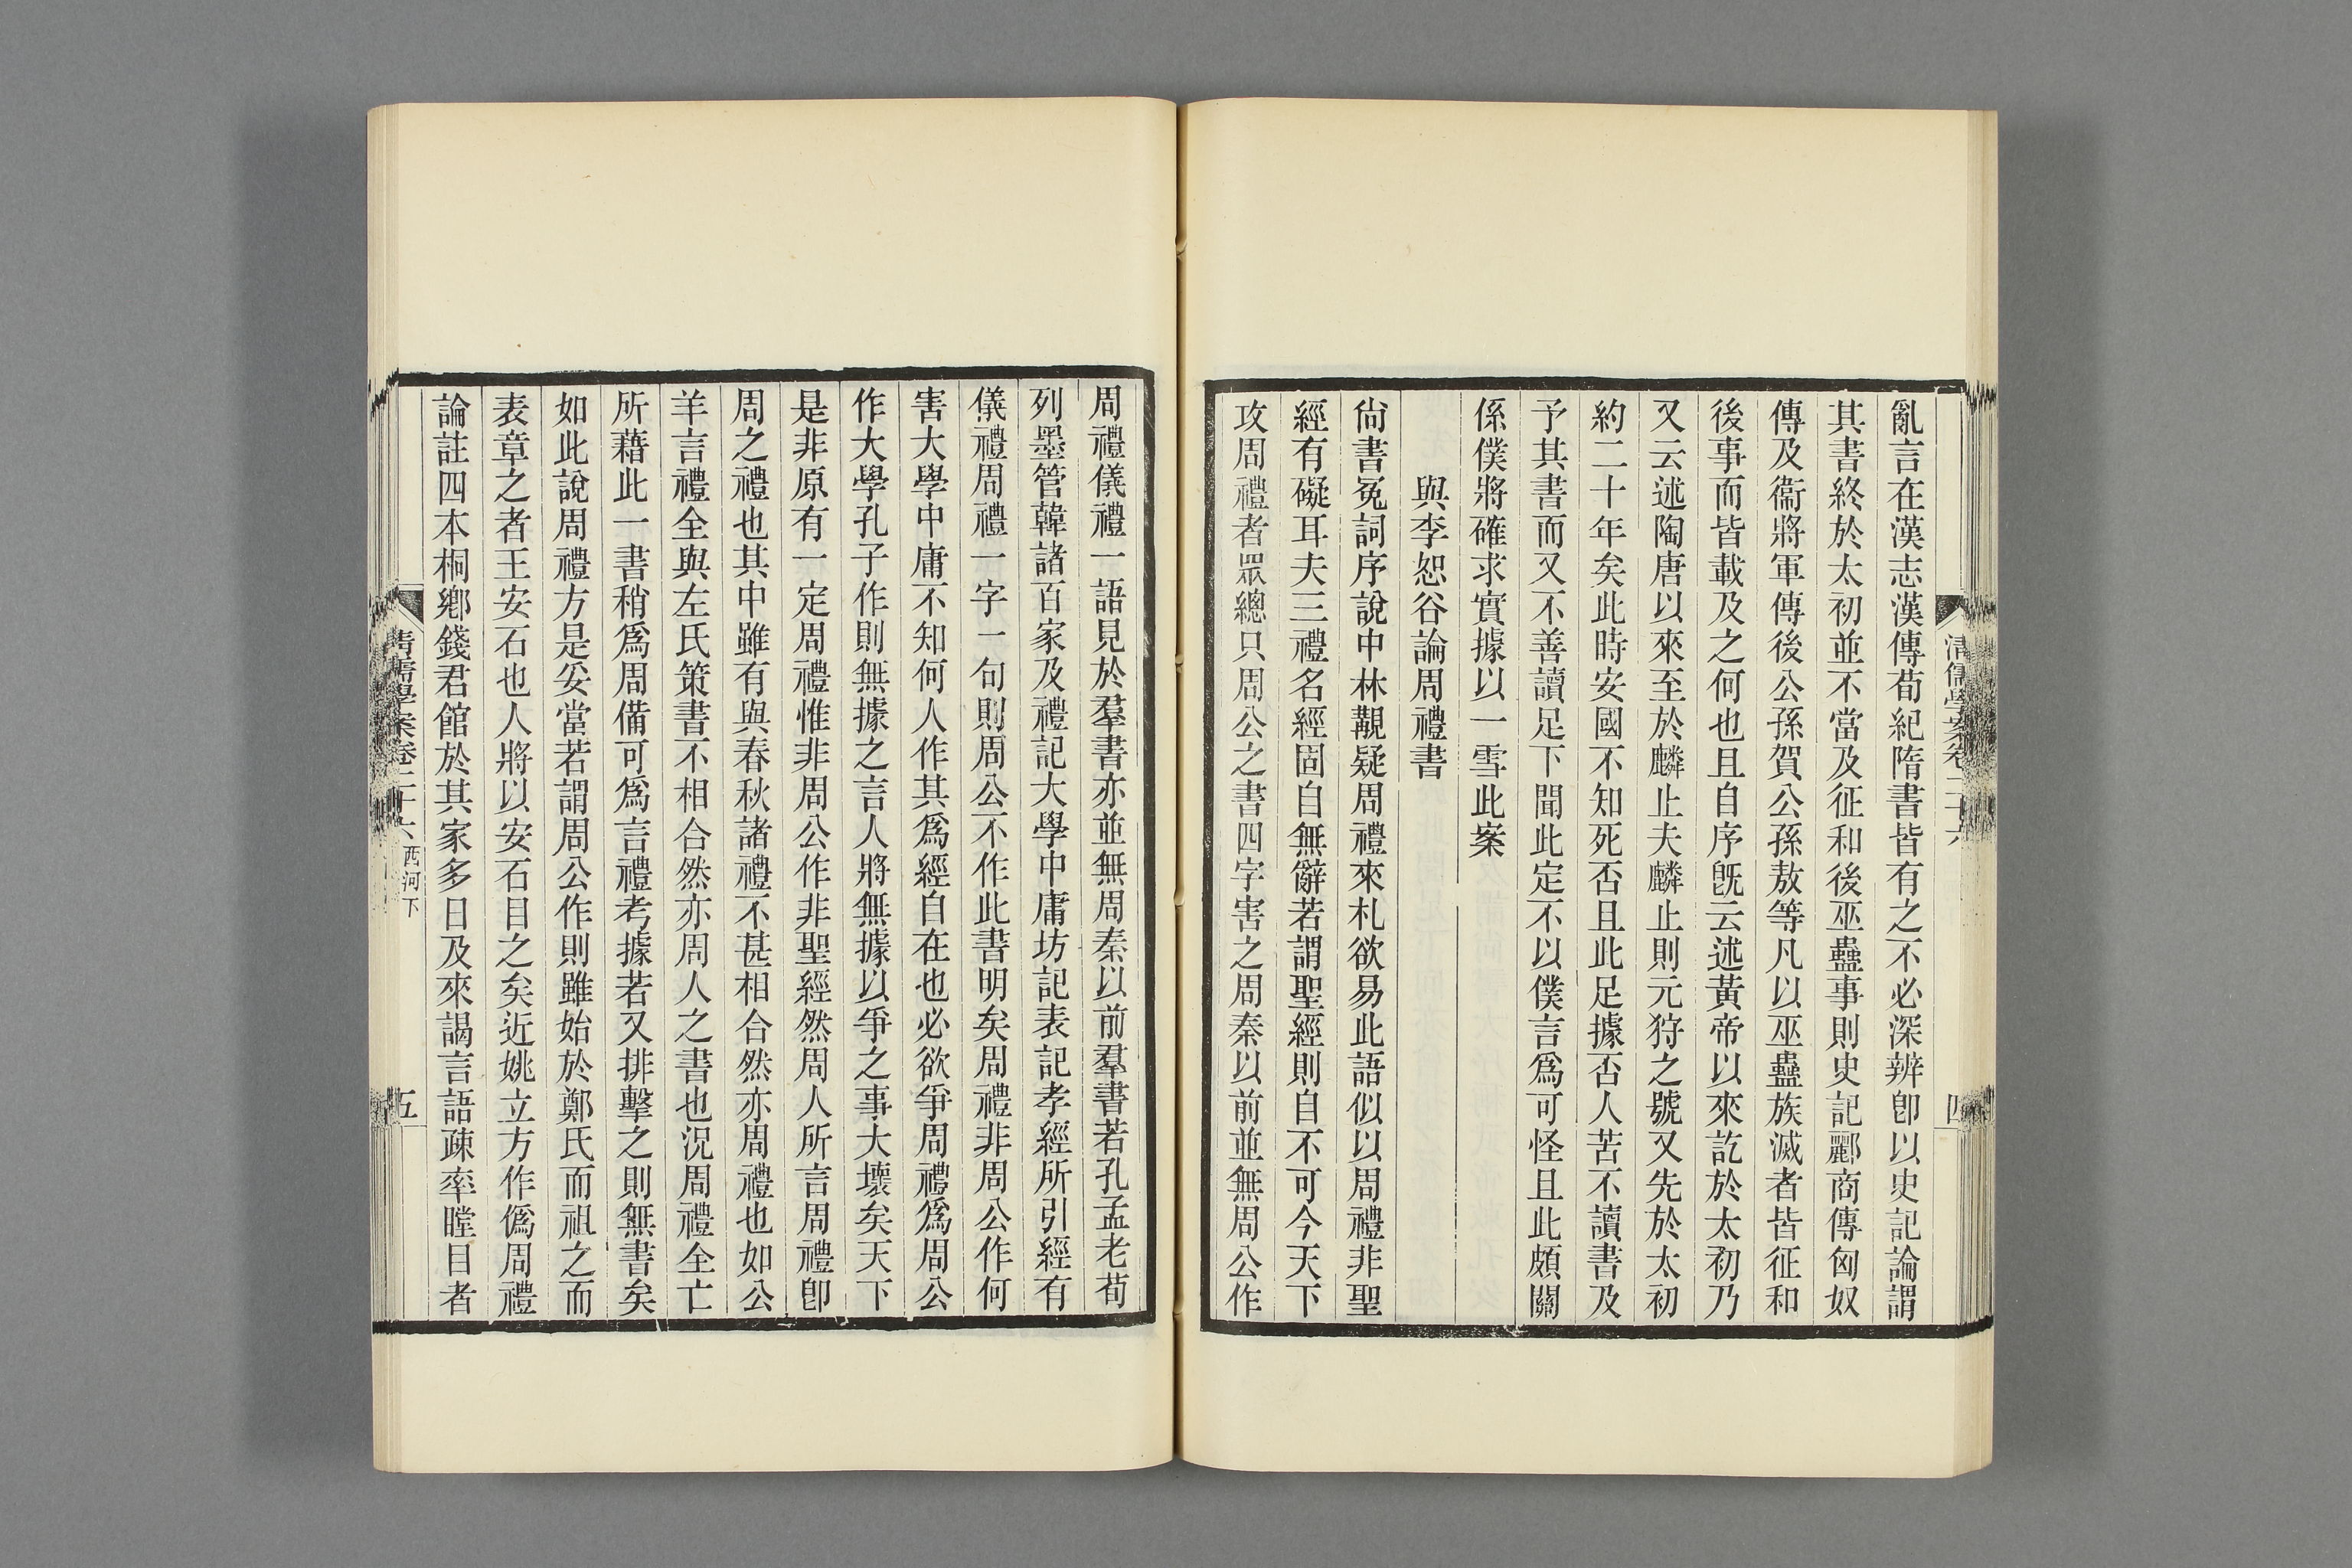 清儒學案卷二十六
四
亂言在漢志漢傳荀紀隋書皆有之不必深辨卽以史記論謂
其書終於太初並不當及征和後巫蠱事則史記酈商傳匈奴
傳及衞將軍傳後公孫賀公孫敖等凡以巫蠱族滅者皆征和
後事而皆載及之何也且自序旣云述黃帝以來訖於太初乃
又云述陶唐以來至於麟止夫麟止則元狩之號又先於太初
約二十年矣此時安國不知死否且此足據否人苦不讀書及
予其書而又不善讀足下聞此定不以僕言爲可怪且此頗關
係僕將確求實據以一雪此案
與李恕谷論周禮書
尙書冤詞序說中林覯疑周禮來札欲易此語似以周禮非聖
經有礙耳夫三禮名經固自無辭若謂聖經則自不可今天下
攻周禮者眾總只周公之書四字害之周秦以前並無周公作
周禮儀禮一語見於羣書亦並無周秦以前羣書若孔孟老荀
列墨管韓諸百家及禮記大學中庸坊記表記孝經所引經有
儀禮周禮一字一句則周公不作此書明矣周禮非周公作何
害大學中庸不知何人作其爲經自在也必欲爭周禮爲周公
作大學孔子作則無據之言人將無據以爭之事大壞矣天下
是非原有一定周禮惟非周公作非聖經然周人所言周禮卽
周之禮也其中雖有與春秋諸禮不甚相合然亦周禮也如公
羊言禮全與左氏策書不相合然亦周人之書也況周禮全亡
所藉此一書稍爲周備可爲言禮考據若又排擊之則無書矣
如此說周禮方是妥當若謂周公作則雖始於鄭氏而祖之而
表章之者王安石也人將以安石目之矣近姚立方作僞周禮
論註四本桐鄉錢君館於其家多日及來謁言語疎率瞠目者
清儒學案卷二十六 西河下
五